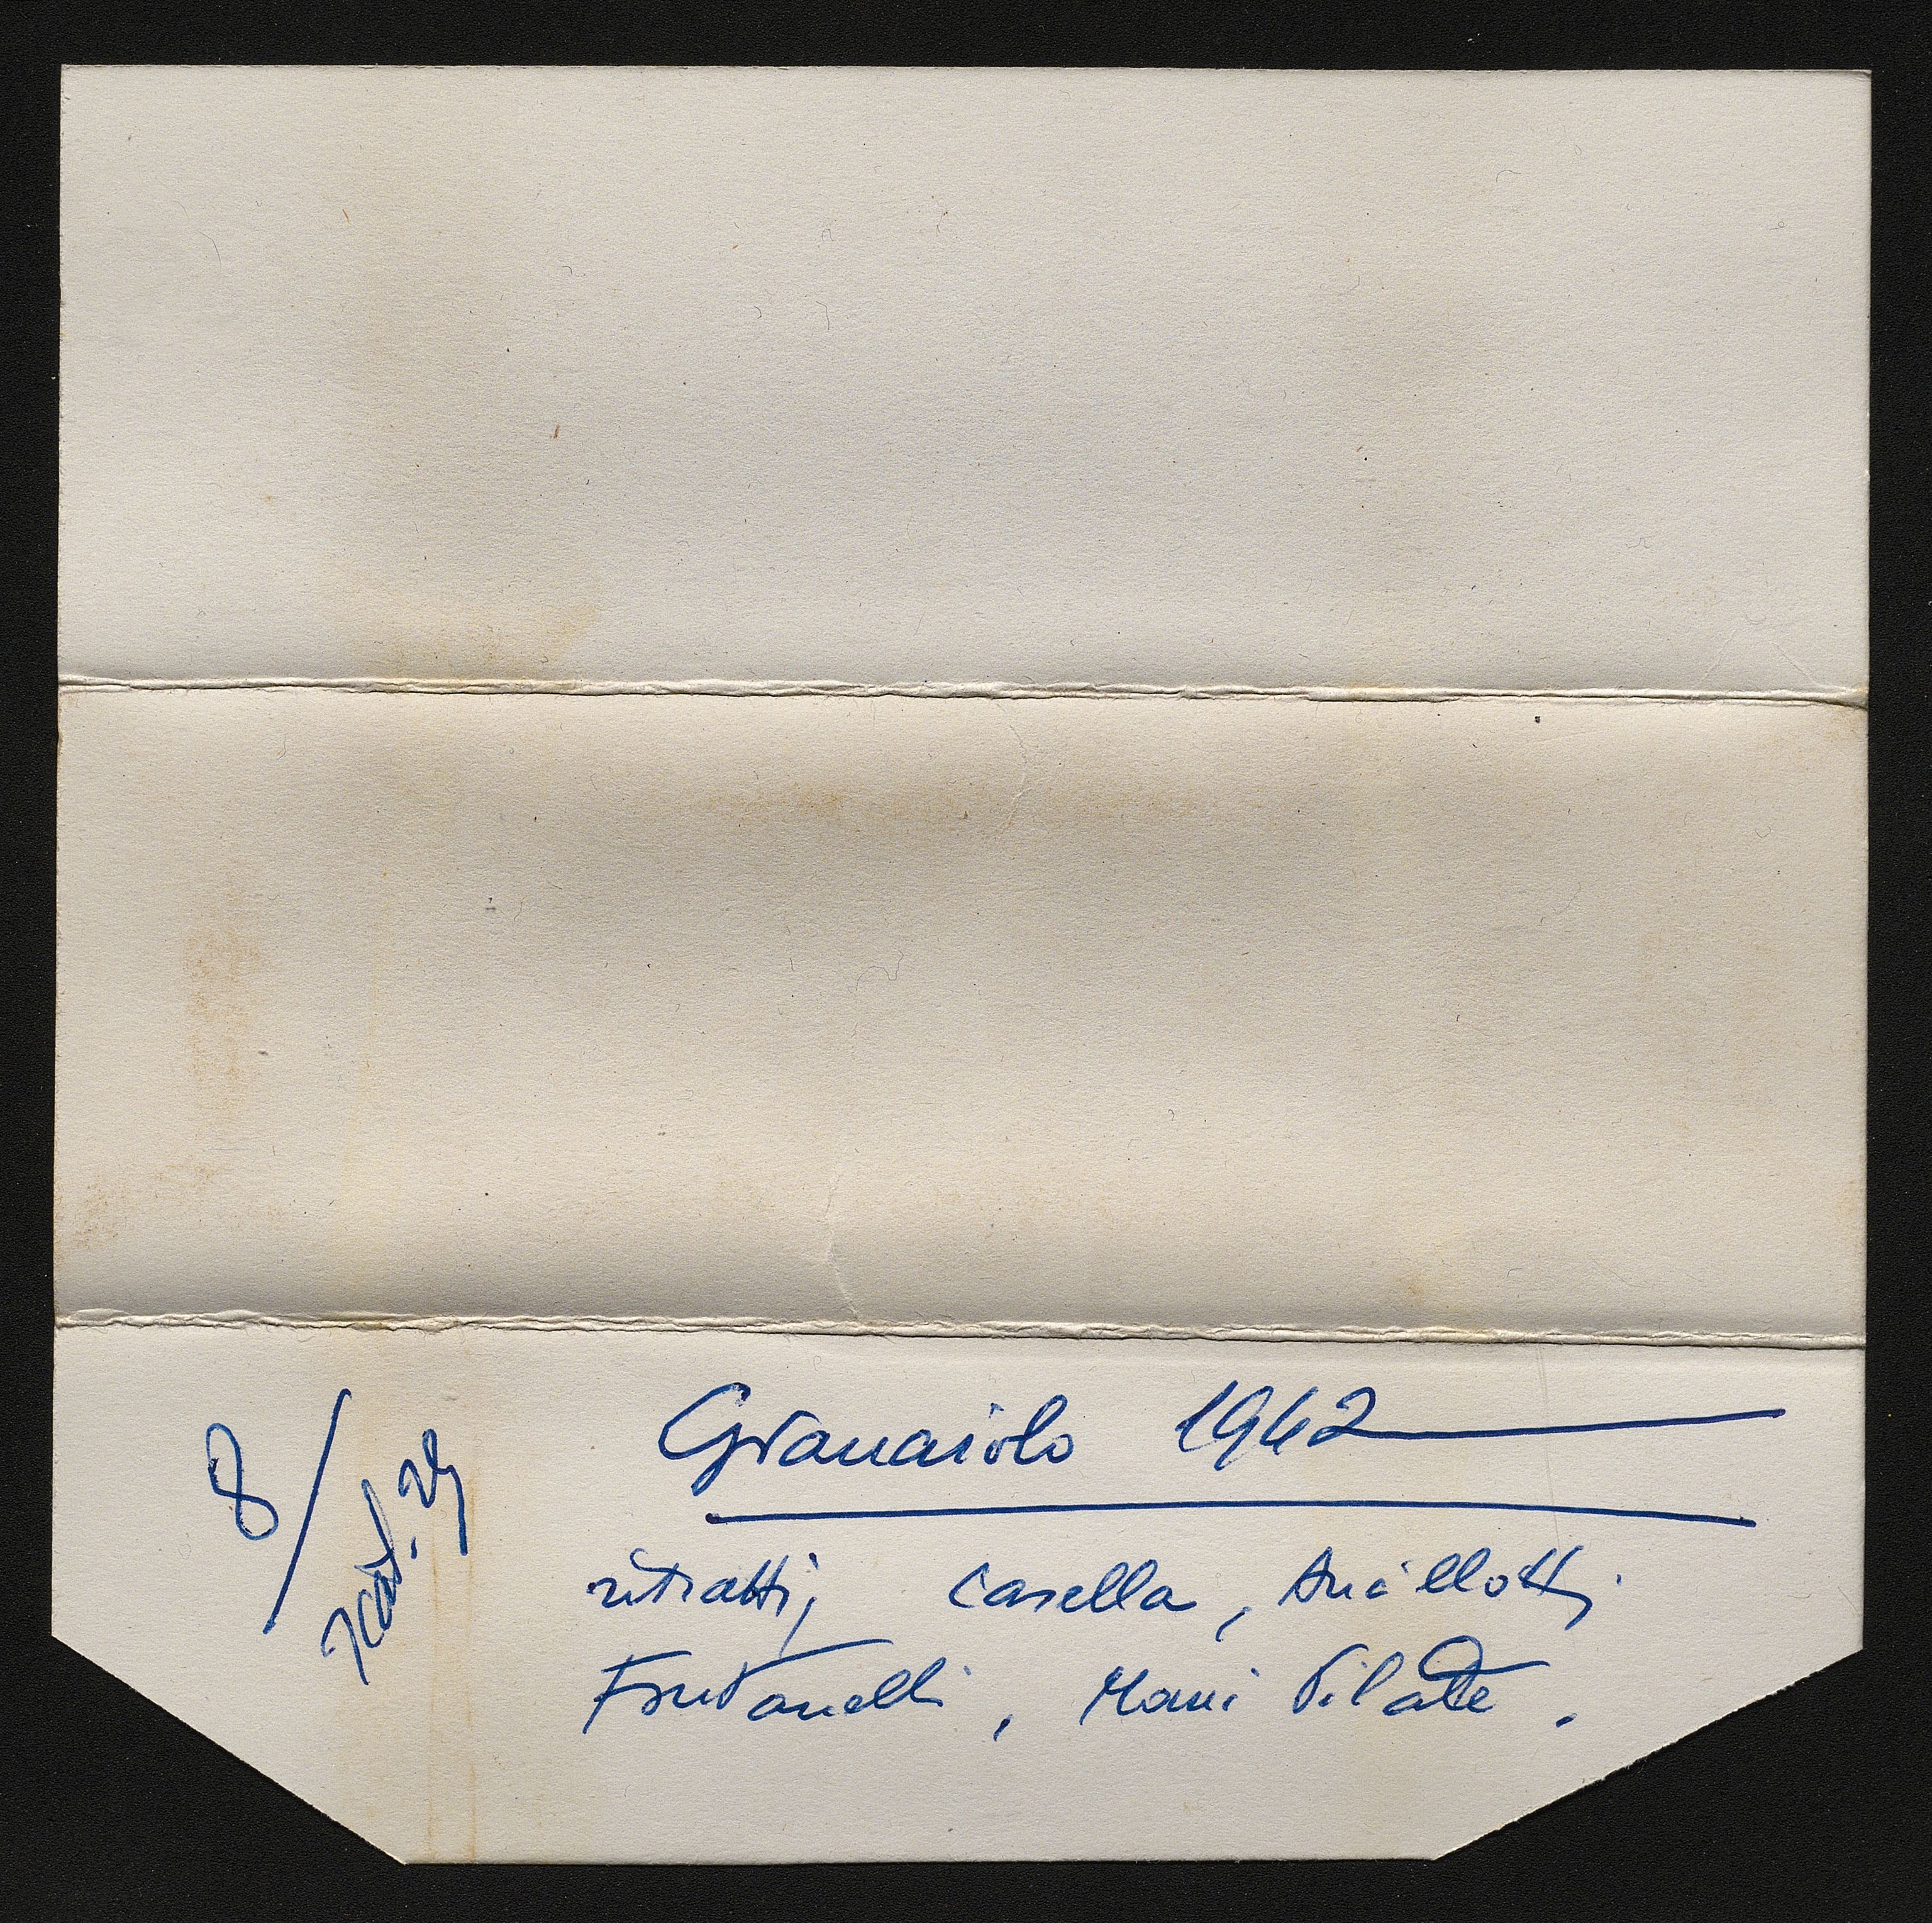 8/
scat. 29
Granaiolo 1962
ritratti, Casella, Ancillotti,
Fontanelli, Masi Pilade.